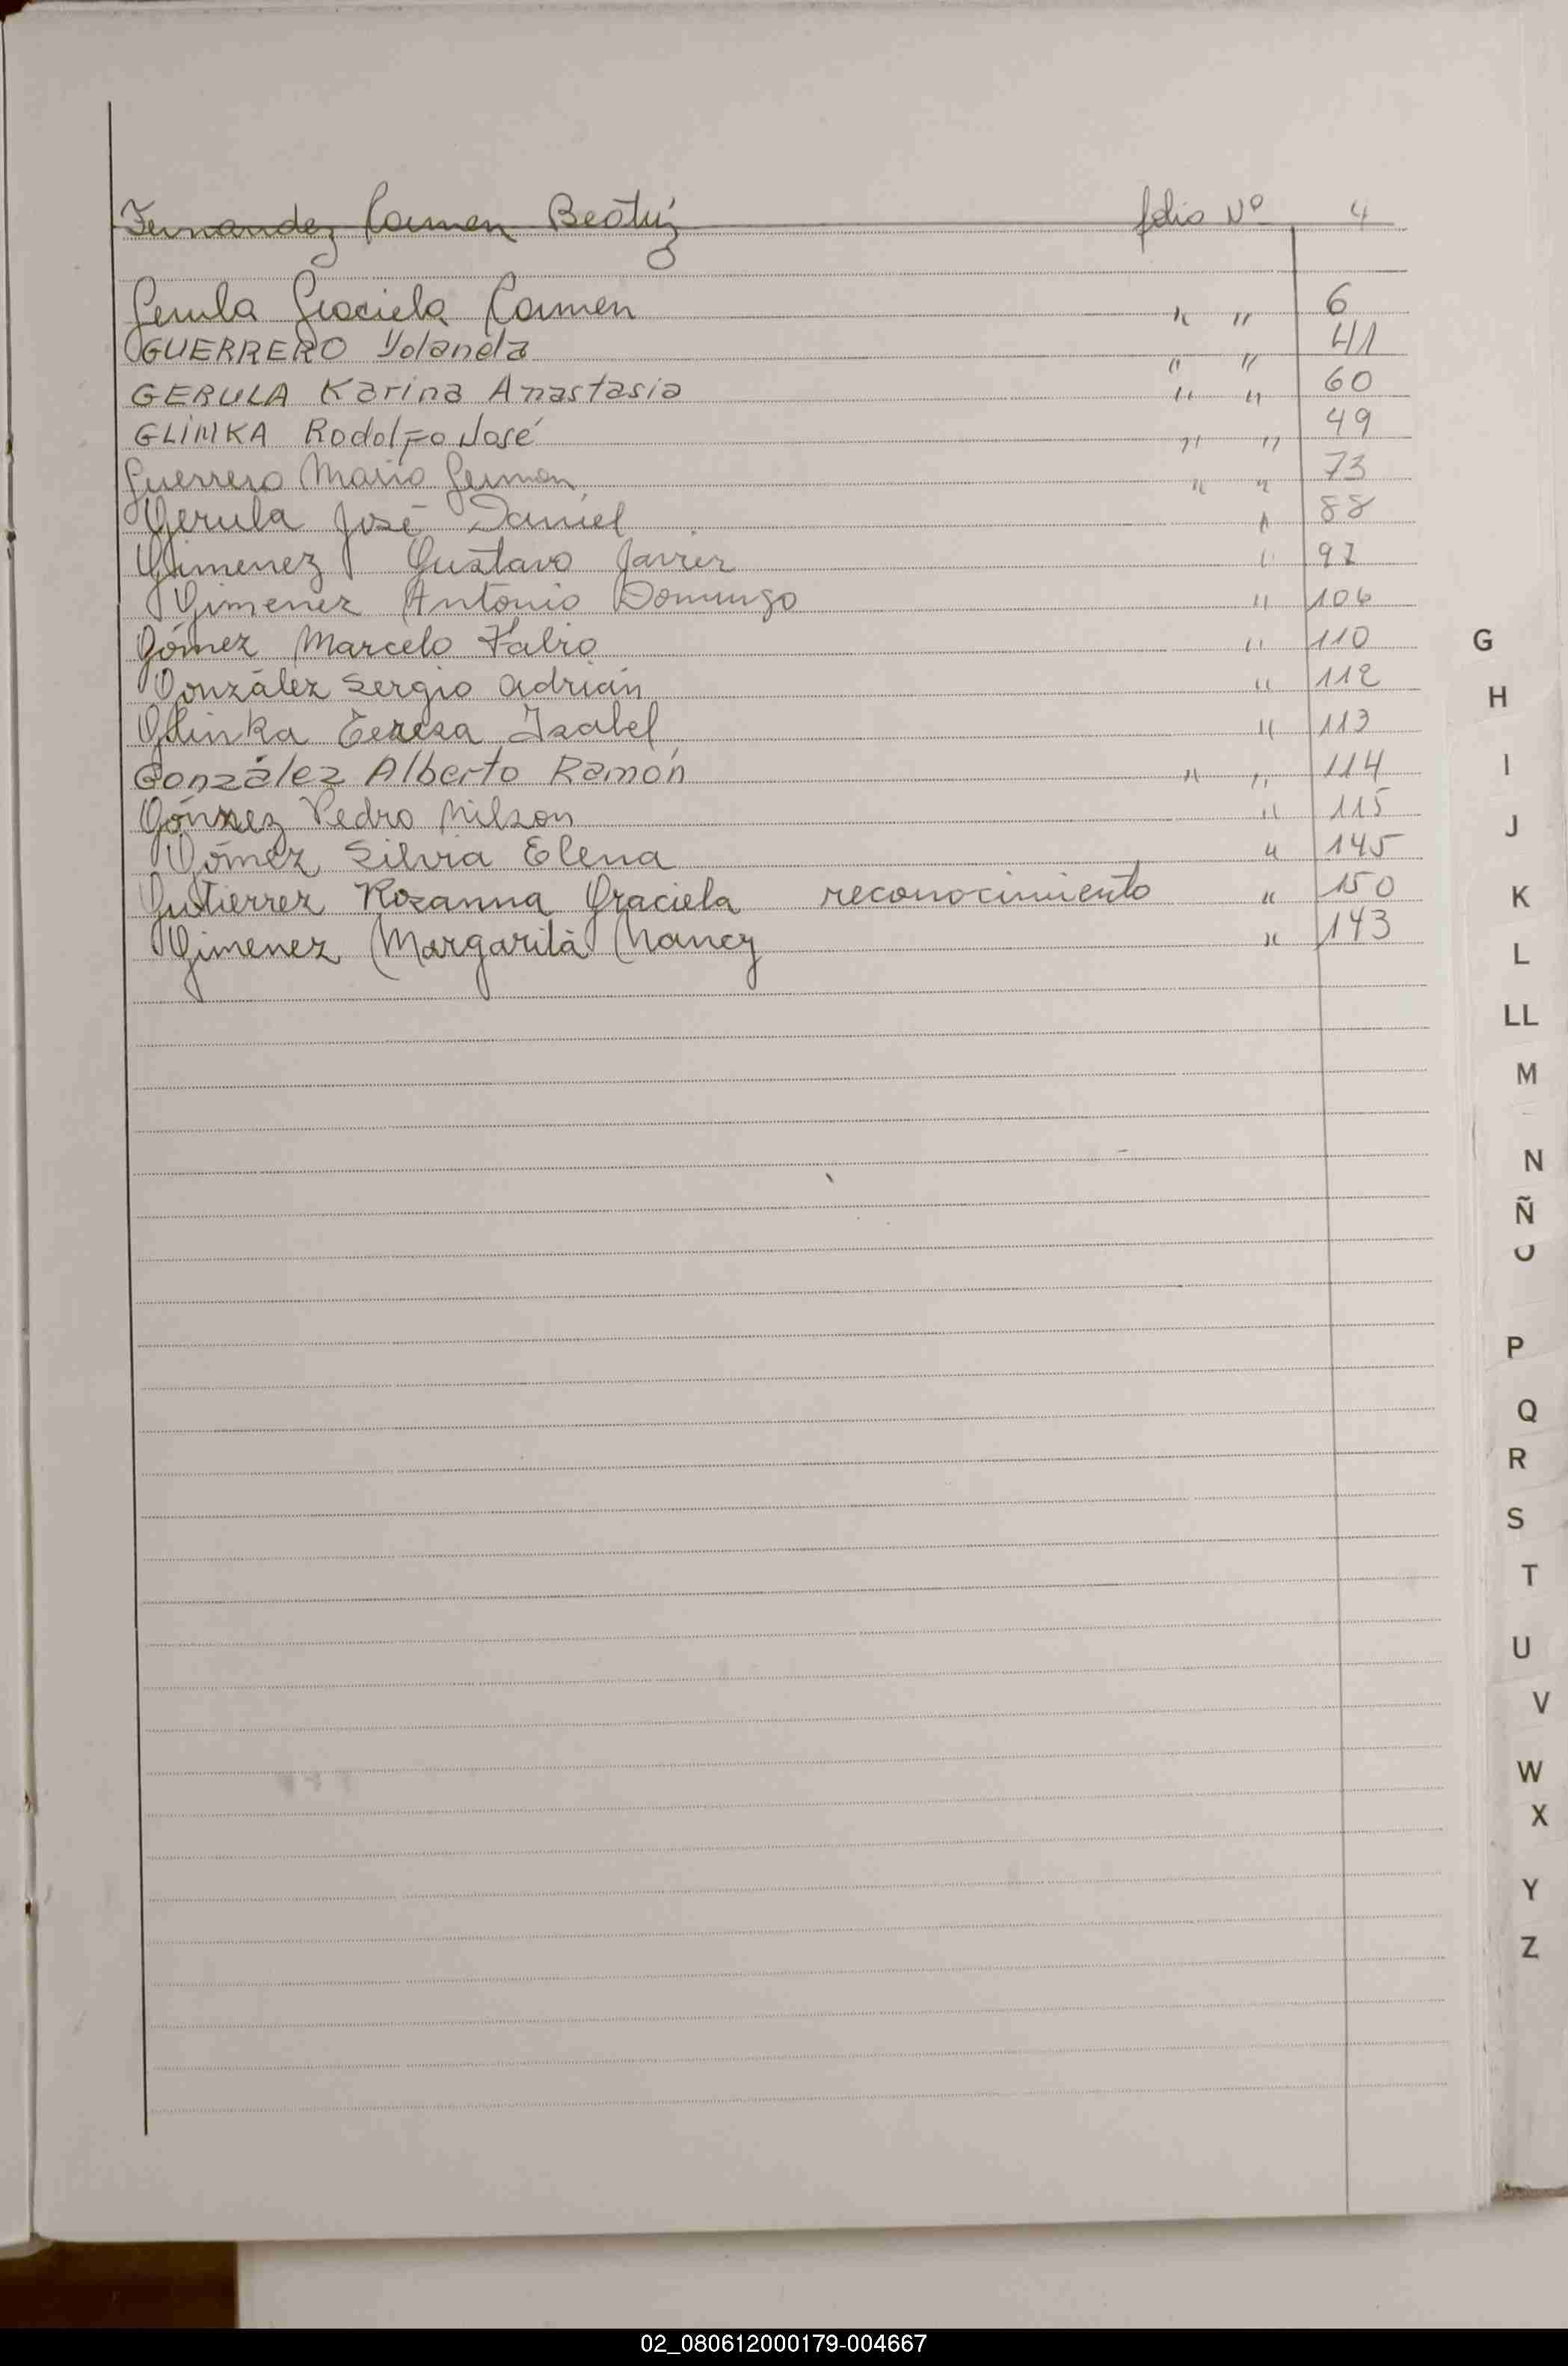 Fernandez Carmen Beatriz folio Nº 4
Gerula Graciela Carmen " " 6
GUERRERO Yolanda " " 41
GERULA Karina Anastasia " " 60
GLINKA Rodolfo José " " 49
Guerrero Mario German " " 73
Gerula José Daniel " 88
Gimenez Gustavo Javier " 97
Gimenez Antonio Domingo " 106
Gómez Marcelo Fabio " 110
González Sergio Adrián " 112
Glinka Tereza Isabel " 113
González Alberto Ramón " " 114
Gómez Pedro Nilson " 115
Gómez Silvia Elena " 145
Gutierrez Rozanna Graciela reconocimiento " 150
Gimenez Margarita Nancy " 143
G
H
I
J
K
L
LL
M
N
Ñ
O
P
Q
R
S
T
U
V
W
X
Y
Z
02_080612000179-004667